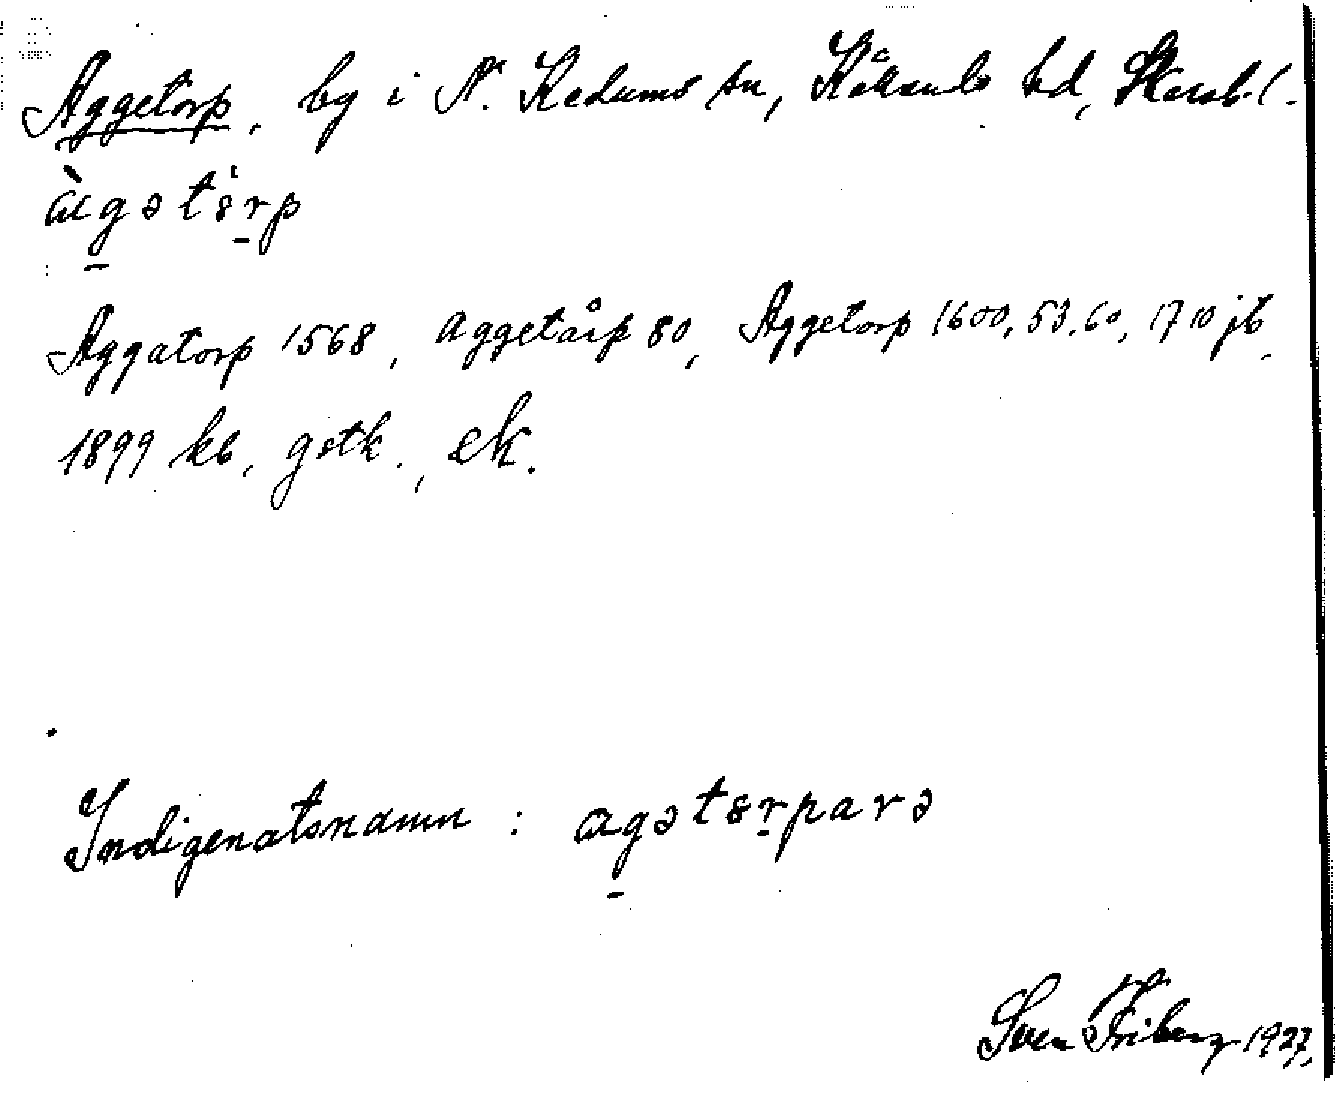 Aggetorp, by i N. Kedums sn, Kållands hd, Skarab. l.
àgət8̇rp
Aggatorp 1568, Aggetårp 80, Aggetorp 1600, 53, 60, 1710 jb,
1899 kb, gstk., ek.
Indigenatsnamn : agət8rparə
Sven Friberg 1927.